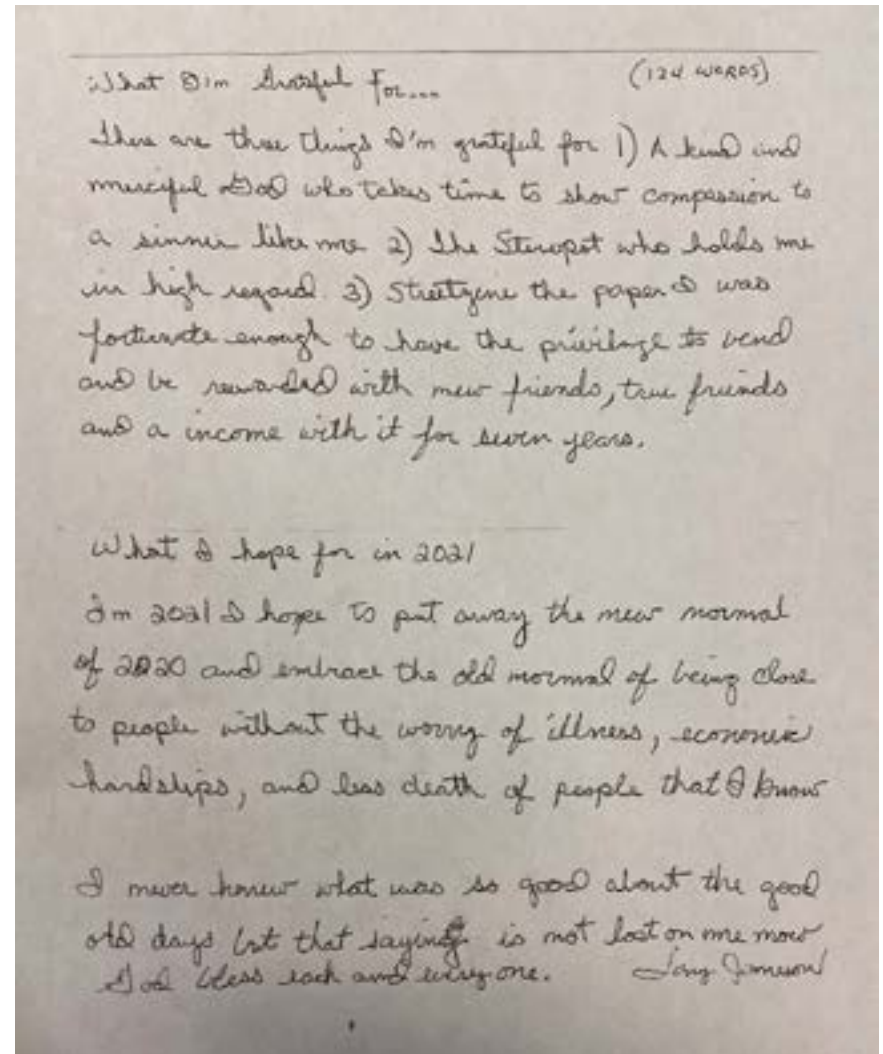 What I'm Grateful For... (124 WORDS)
There are three things I'm grateful for 1) A kind and
merciful God who takes time to show compassion to
a sinner like me 2) The Stewpot who holds me
in high regard. 3) Streetzine the paper I was
fortunate enough to have the privilege to vend
and be rewarded with new friends, true friends
and a income with it for seven years.
What I hope for in 2021
In 2021 I hope to put away the new normal
of 2020 and embrace the old normal of being close
to people without the worry of illness, economic
hardships, and less death of people that I know
I never knew what was so good about the good
old days but that saying is not lost on me now
God bless each and every one.